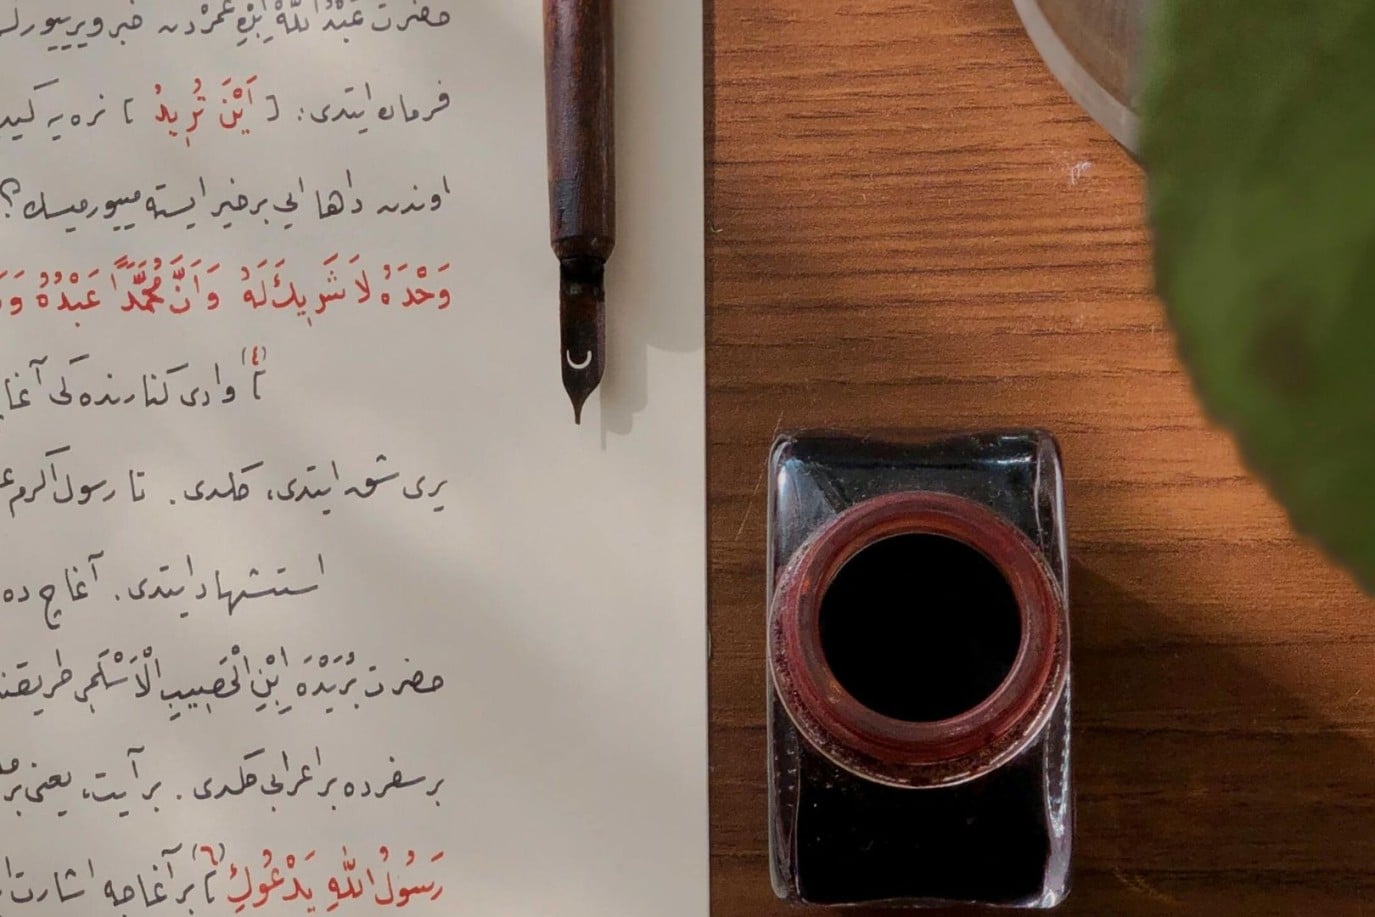 حضرت عَبْدُ اللّٰهِ ابْنِ عُمَرْدن خبر ويرييور
فرمان ايتدى: [ اَيْنَ تُرِيدُ ] نره يه كيد
اوندن داها ايى بر خير ايسته مييورميسك؟
وَحْدَهُ لاَ شَرِيكَ لَهُ وَاَنَّ مُحَمَّدًا عَبْدُهُ وَ
[(٤) وادى كنارنده كى آغا
يرى شق ايتدى، كلدى. تا رسول اكرم
استشهاد ايتدى. آغاج ده
حضرت بُرَيْدَةَ ابْنِ الْحَصِيبِ الْاَسْلَمِى طريقن
بر سفرده بر اعرابى كلدى. بر آيت، يعنى بر
رَسُولُ اللّٰهِ يَدْعُوكِ [(٦) بر آغاجه اشارت ا